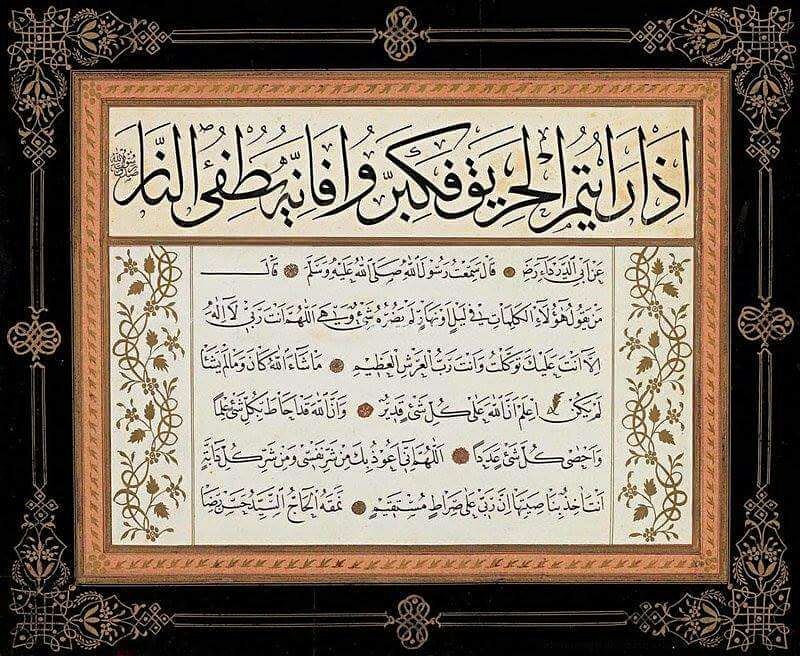 اذا رايتم الحريق فكبروا فانه يطفئ النار
عن ابي الدرداء رض قال سمعت رسول الله صلى الله عليه وسلم قال
من يقول هؤلاء الكلمات في ليل او نهار لم يضره شئ وهي هي اللهم انت ربي لا اله
الا انت عليك توكلت وانت رب العرش العظيم ما شاء الله كان وما لم يشأ
لم يكن اعلم ان الله على كل شئ قدير وان الله قد احاط بكل شئ علما
واحصى كل شئ عددا اللهم اني اعوذ بك من شر نفسي ومن شر كل دابة
انت اخذ بناصيتها ان ربي على صراط مستقيم نمقه الحاج السيد حسن رضا